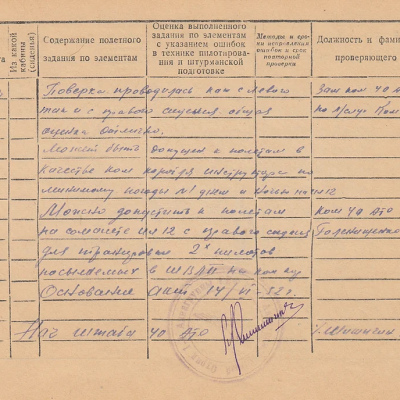 Из какой кабины (сиденья)
Содержание полетного задания по элементам
Оценка выполненного задания по элементам с указанием ошибок в технике пилотирования и штурманской подготовке
Методы и сроки исправления ошибок и срок повторной проверки
Должность и фами
проверяющего
Поверка проводилась как с левого
так и с правого сиденья. общая
оценка отлично.
Может быть допущен к полетам в
качестве ком корабля инструктора по
минимуму погоды №1 днем и ночью
Можно допустить к полетам
на самолете ил 12 с правого сиденья
для тренировки 2х пилотов
посылаемых в ШВЛП на ком
Основание акт 14/VI 52 г.
Нач штаба 40 АТО
Зам ком 40
ком 40 АТО